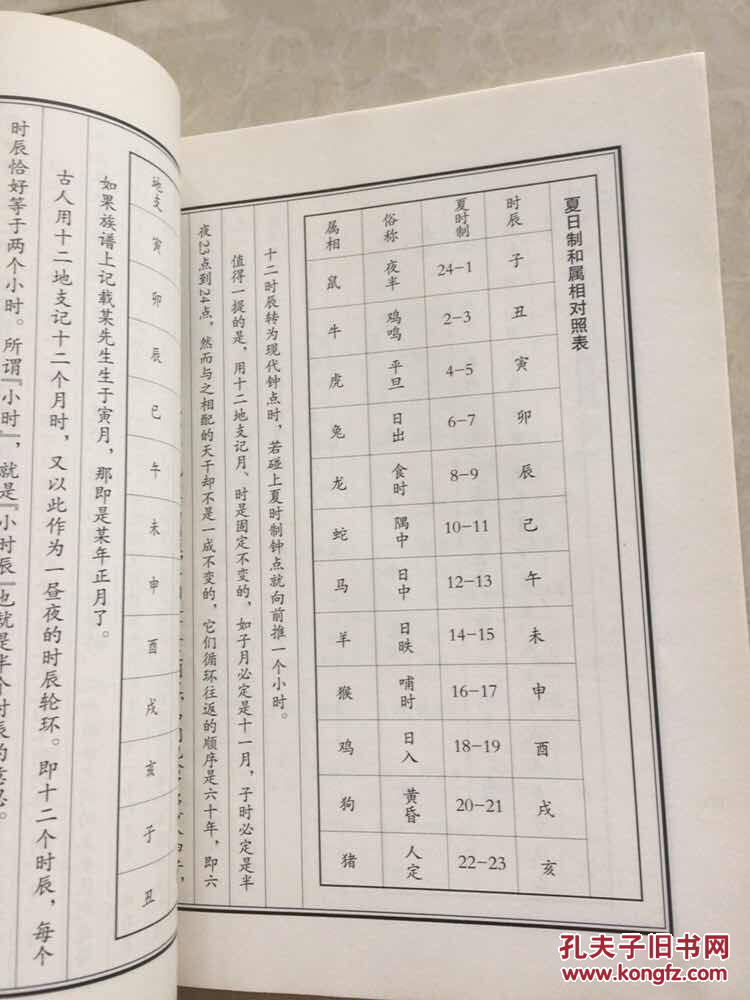 夏日制和属相对照表
时辰 子 丑 寅 卯 辰 己 午 未 申 酉 戌 亥
夏时制 24-1 2-3 4-5 6-7 8-9 10-11 12-13 14-15 16-17 18-19 20-21 22-23
俗称 夜半 鸡鸣 平旦 日出 食时 隅中 日中 日昳 哺时 日入 黄昏 人定
属相 鼠 牛 虎 兔 龙 蛇 马 羊 猴 鸡 狗 猪
十二时辰转为现代钟点时，若碰上夏时制钟点就向前推一个小时。
值得一提的是，用十二地支记月、时是固定不变的，如子月必定是十一月，子时必定是半
夜23点到24点，然而与之相配的天干却不是一成不变的，它们循环往返的顺序是六十年，即六
地支 寅 卯 辰 巳 午 未 申 酉 戌 亥 子 丑
如果族谱上记载某先生生于寅月，那即是某年正月了。
古人用十二地支记十二个月时，又以此作为一昼夜的时辰轮环。即十二个时辰，每个
时辰恰好等于两个小时。所谓『小时』，就是『小时辰』也就是半个时辰的意思。
孔夫子旧书网
www.kongfz.com